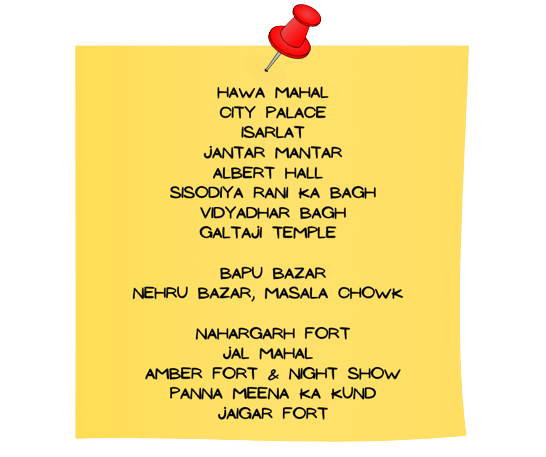 HAWA MAHAL
CITY PALACE
ISARLAT
JANTAR MANTAR
ALBERT HALL
SISODIYA RANI KA BAGH
VIDYADHAR BAGH
GALTAJI TEMPLE
BAPU BAZAR
NEHRU BAZAR, MASALA CHOWK
NAHARGARH FORT
JAL MAHAL
AMBER FORT & NIGHT SHOW
PANNA MEENA KA KUND
JAIGAR FORT